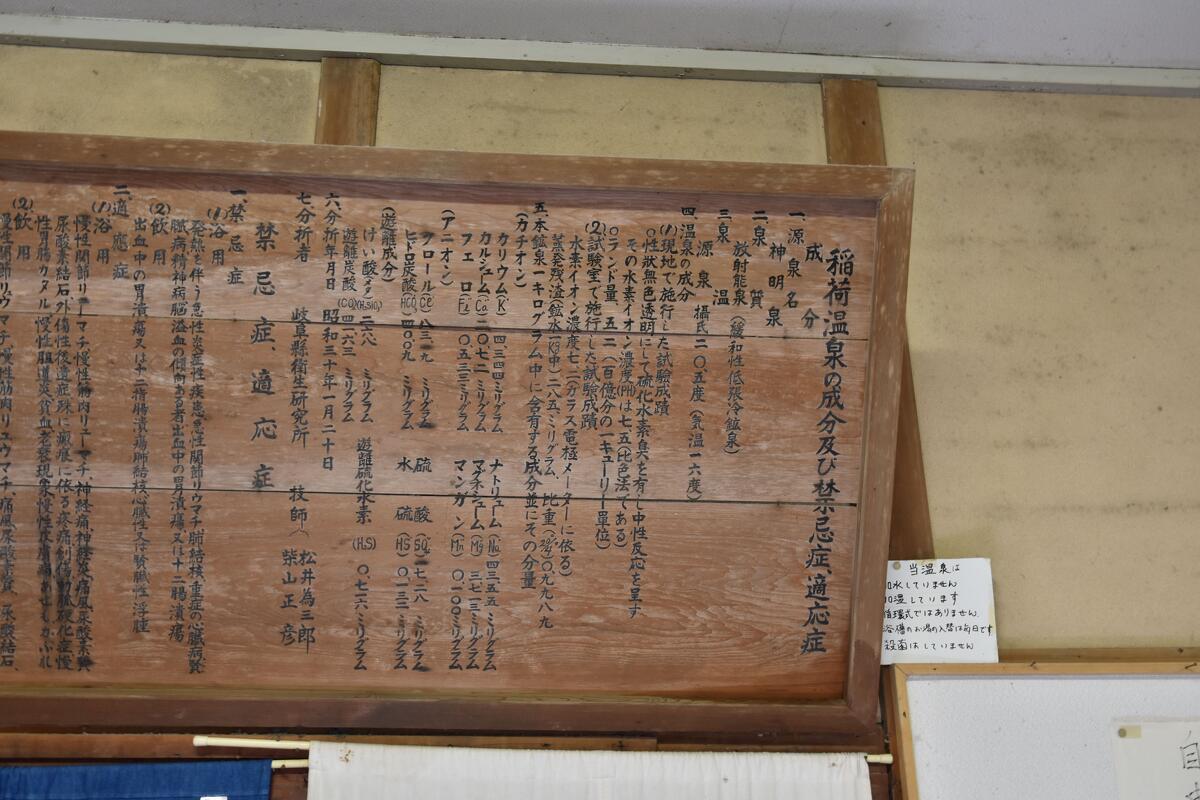 稲荷温泉の成分及び禁忌症、適応症
成分
一、源泉名 神明泉
二、泉質 放射能泉(緩和性低張冷鉱泉)
三、泉温
源泉 摂氏二〇、五度(気温一六度)
四、温泉の成分
(1)現地で施行した試験成蹟
〇性状無色透明にして硫化水素臭を有し中性反応を呈す
その水素イオン濃度(PH)は七、五(比色法である)
〇ランド量 五、二(百億分の一キューリー單位)
(2)試験室で施行した試験成蹟
水素イオン濃度七、二(ガラス電極メーターに依る)
蒸発残渣(鉱水一Kg中)二八五、ミリグラム、比重 〇、九九八九
五、本鉱泉一キログラム中に含有する成分並にその分量
(カチオン)
カリウム(K) 四三四ミリグラム ナトリューム(Na) 四三、五五 ミリグラム
カルシューム(Ca) 二〇、七二 ミリグラム マグネシューム(Mg) 一、七三 ミリグラム
フェロ 〇、五三三ミリグラム マンガン(Mn) 〇、一〇〇ミリグラム
(アニオン)
クロール 八三、九 ミリグラム 硫酸 一七、二八 ミリグラム
ヒドロ炭酸 四〇、〇九 ミリグラム 水硫(HS) 〇、一三二 ミリグラム
(遊離成分)
けい酸(メタ) 二六、八 ミリグラム 遊離硫化水素(H2S) 〇、七六ミリグラム
遊離炭酸(CO2) 四、二六三 ミリグラム
六、分析年月日 昭和三十年一月二十日
七、分析者 岐阜縣衛生研究所 技師 松井為三郎
柴山正彦
禁忌症、適応症
一、禁忌症
(1)浴用
発熱を伴う急性炎症性疾患急性関節リウマチ肺結核重症の心臓病腎
臓病精神病脳溢血の傾向ある者出血中の胃潰瘍又は十二腸潰瘍
(2)飲用
出血中の胃潰瘍又は十二指腸潰瘍肺結核心臓性又は腎臓性浮腫
二、適應症
(1)浴用
慢性関節リューマチ慢性筋肉リューマチ、神経痛神経炎、痛風尿酸素質
尿酸素結石外傷性後遺症殊に瘢痕に依る疼痛創傷動脈硬化症慢
性胃腸カタル慢性胆嚢炎貧血老衰現象慢性皮膚病あせもかぶれ
(2)飲用
慢性関節リウマチ慢性筋肉リュウマチ、痛風尿酸素質、尿酸結石、
当温泉は
加水していません
加温しています
循環式ではありません
浴槽のお湯の入替は毎日です
殺菌はしていません
自